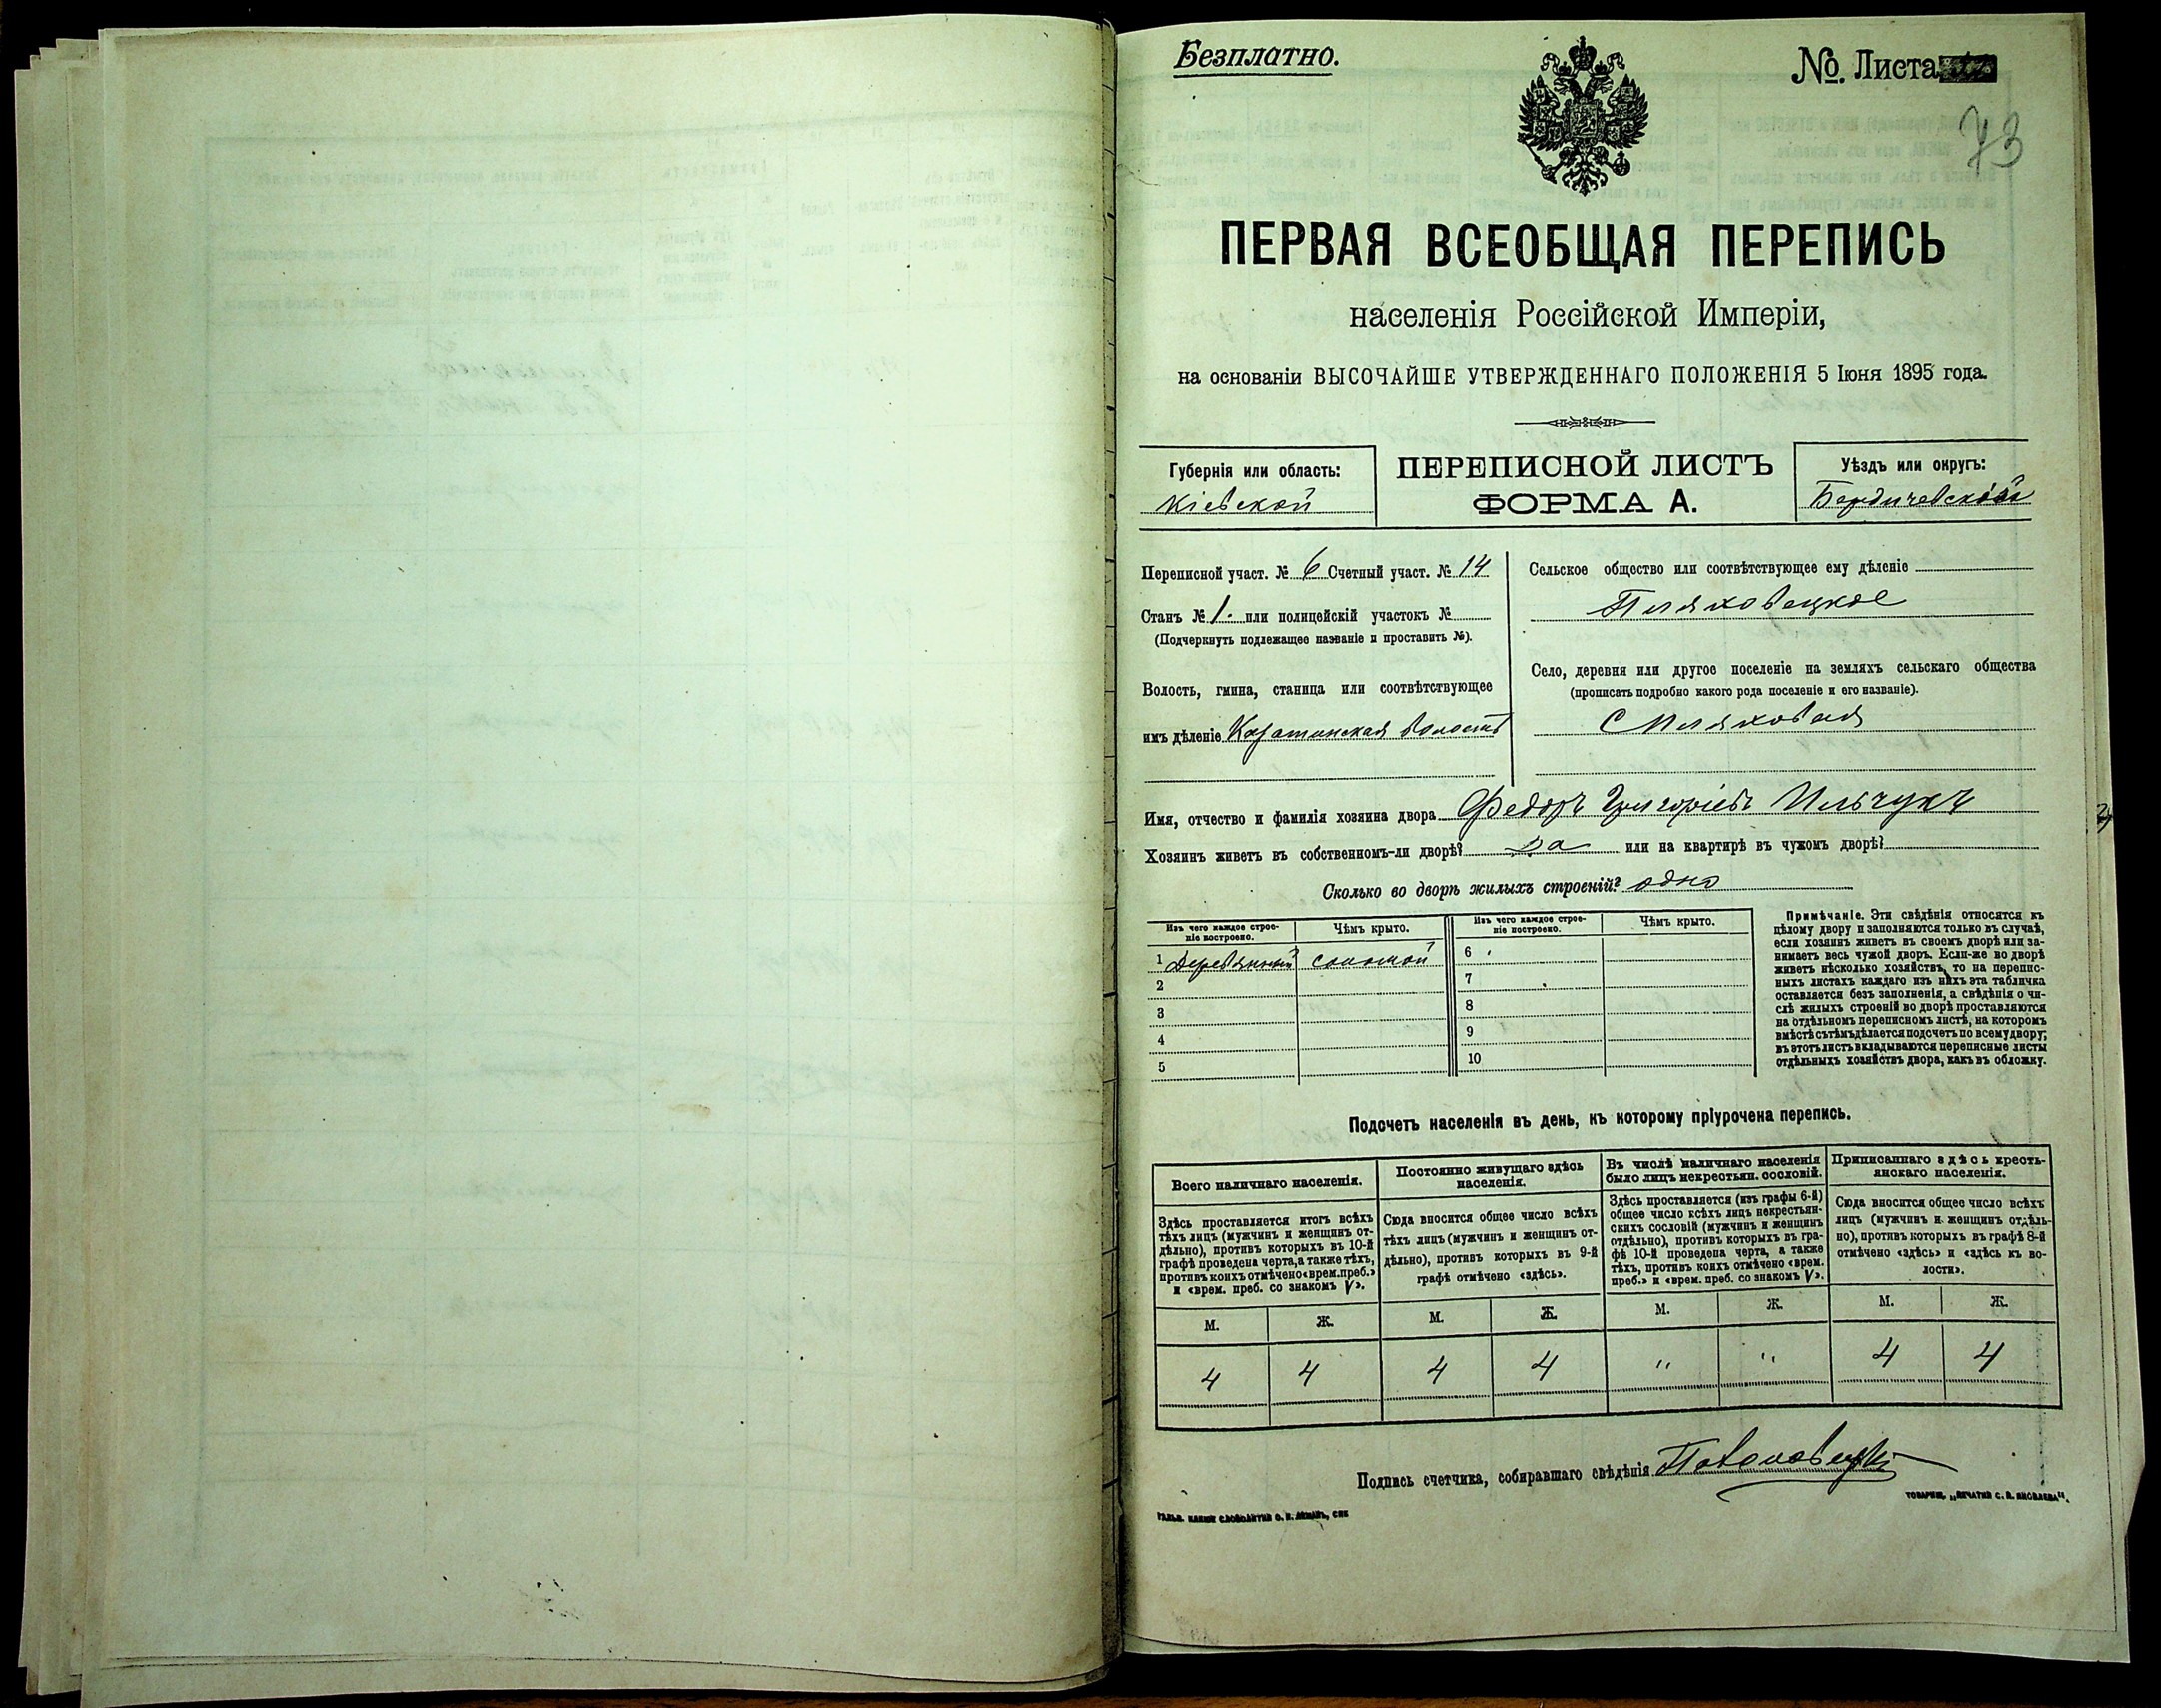 Безплатно.
№ Листа
73
ПЕРВАЯ ВСЕОБЩАЯ ПЕРЕПИСЬ
населенія Россійской Имперіи,
на основаніи ВЫСОЧАЙШЕ УТВЕРЖДЕННАГО ПОЛОЖЕНІЯ 5 Іюня 1895 года.
Губернія или область:
Кіевской
ПЕРЕПИСНОЙ ЛИСТЪ
ФОРМА А.
Уѣздъ или округъ:
Бердичевской
Переписной участ. № 6 Счетный участ. № 14
Станъ № 1. или полицейскій участокъ №
(Подчеркнуть подлежащее названіе и проставить №).
Волость, гмина, станица или соотвѣтствующее
имъ дѣленіе Кашперовская волость
Сельское общество или соотвѣтствующее ему дѣленіе
Пляховецкое
Село, деревня или другое поселеніе на земляхъ сельскаго общества
(прописать подробно какого рода поселеніе и его названіе).
С Пляховая
Имя, отчество и фамилія хозяина двора Федоръ Григоріевъ Ильчукъ
Хозяинъ живетъ въ собственномъ-ли дворѣ? Да или на квартирѣ въ чужомъ дворѣ?
Сколько во дворѣ жилыхъ строеній? одно
Изъ чего каждое строе-
ніе построено.
Чѣмъ крыто.
Изъ чего каждое строе-
ніе построено.
Чѣмъ крыто.
1 Деревянный соломой
2
3
4
5
6
7
8
9
10
Примѣчаніе. Эти свѣдѣнія относятся къ
цѣлому двору и заполняются только въ случаѣ,
если хозяинъ живетъ въ своемъ дворѣ или за-
нимаетъ весь чужой дворъ. Если-же во дворѣ
живетъ нѣсколько хозяйствъ, то на перепис-
ныхъ листахъ каждаго изъ нихъ эта табличка
оставляется безъ заполненія, а свѣдѣнія о чи-
слѣ жилыхъ строеній во дворѣ проставляются
на отдѣльномъ переписномъ листѣ, на которомъ
вмѣстѣ съ тѣмъ дѣлается подсчетъ по всему двору;
въ этотъ листъ вкладываются переписные листы
отдѣльныхъ хозяйствъ двора, какъ въ обложку.
Подсчетъ населенія въ день, къ которому пріурочена перепись.
Всего наличнаго населенія.
Здѣсь проставляется итогъ всѣхъ
тѣхъ лицъ (мужчинъ и женщинъ от-
дѣльно), противъ которыхъ въ 10-й
графѣ проведена черта, а также тѣхъ,
противъ коихъ отмѣчено «врем. преб.»
и «врем. преб. со знакомъ V».
Постоянно живущаго здѣсь
населенія.
Сюда вносится общее число всѣхъ
тѣхъ лицъ (мужчинъ и женщинъ от-
дѣльно), противъ которыхъ въ 9-й
графѣ отмѣчено «здѣсь».
Въ числѣ наличнаго населенія
было лицъ некрестьян. сословій.
Здѣсь проставляется (изъ графы 6-й)
общее число всѣхъ лицъ некрестьян-
скихъ сословій (мужчинъ и женщинъ
отдѣльно), противъ которыхъ въ гра-
фѣ 10-й проведена черта, а также
тѣхъ, противъ коихъ отмѣчено «врем.
преб.» и «врем. преб. со знакомъ V».
Приписаннаго здѣсь кресть-
янскаго населенія.
Сюда вносится общее число всѣхъ
лицъ (мужчинъ и женщинъ отдѣль-
но), противъ которыхъ въ графѣ 8-й
отмѣчено «здѣсь» и «здѣсь къ во-
лости».
М. Ж. М. Ж. М. Ж. М. Ж.
4 4 4 4 " " 4 4
Подпись счетчика, собиравшаго свѣдѣнія
ТОВАРИЩ. „ПЕЧАТНЯ С. П. ЯКОВЛЕВА".